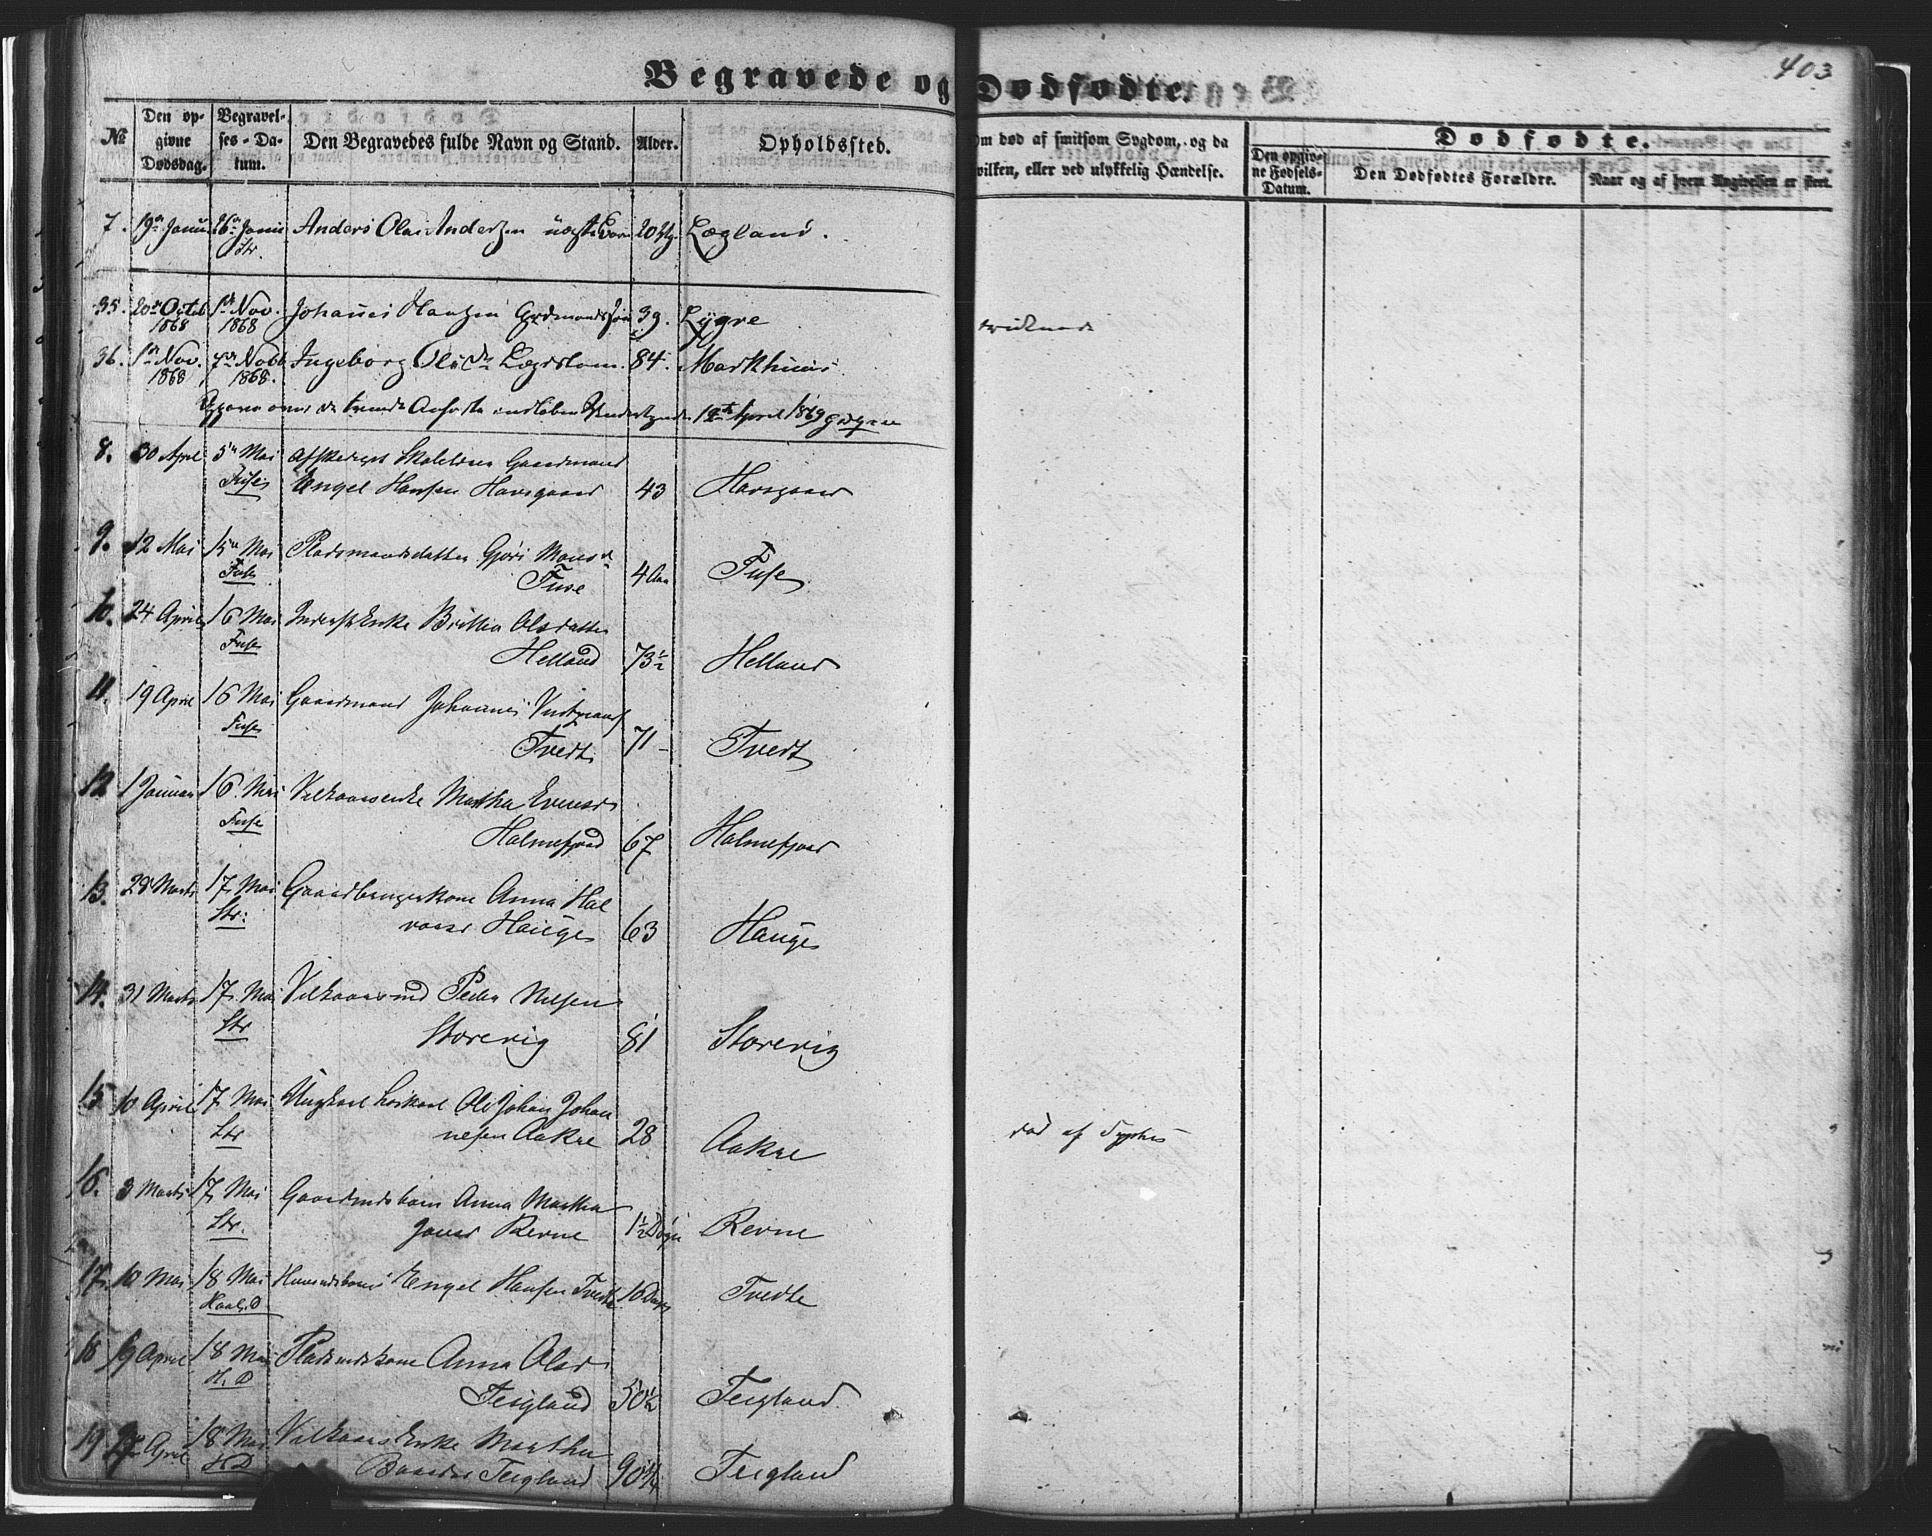 Begravede og Dødfødte.
403
№
Den opgivne Dødsdag.
Begravelses-Datum.
Den Begravedes fulde Navn og Stand.
Alder.
Opholdssted.
Om død af smitsom Sygdom, og da
hvilken, eller ved ulykkelig Hændelse.
Dødfødte.
Den opgivne Fødsels-Datum.
Den Dødfødtes Forældre.
Naar og af hvem Angivelsen er skeet.
7. 19de Janu 26de Janu Anders Olai Andersen Lægland.
Str.
35. 20de Octob 1ste Nov. Johannes Hansen 39. Lygre
1868 1868
36. 1ste Nov. 7de Novb Ingeborg Olsdr Lægdslem. 84. Markhuus
1868 1868.
19de April 1869
8. 30 April 5te Mai Gaardmand
Fuse Engel Hansen Havsgaard 43 Havsgaard
9. 12 Mai 15de Mai Pladsmandsdatter Gjøri Monsd
Fuse Fuse 4 Aar Fuse
10. 24 April 16 Mai Enke Britha Olsdatter
Fuse Helland 73½ Helland
11. 19 April 16 Mai Gaardmand Johannes
Fuse Tvedt 71 Tvedt
12 1 Januar 16 Mai Vilkaarsenke Martha
Fuse Holmefjord 67 Holmefjord
13. 28 Marts 17 Mai Gaardbrugerkone Anna Hal
Str. vorsd Hauge 63 Hauge
14. 31 Marts 17 Mai Vilkaarsmd Peder Nilsen
Str Storevig 81 Storevig
15 10 April 17 Mai Ungkarl Loskarl Ole Johan Johan
Str nesen Aakre 28 Aakre død af Typhus
16. 3 Marts 17 Mai Gaardmdsbarn Anna Martha
Str. Revne 1½ Døgn Revne
17. 10 Mai 18 Mai Engel Hansen Tvedte 16 Dage Tvedte
Haal.D
18 9 April 18 Mai Pladsmdskone Anna Olsd
H.D Teigland 50½ Teigland
19 April 18 Mai Vilkaars Enke Martha
H.D Baardsd Teigland 90¼ Teigland